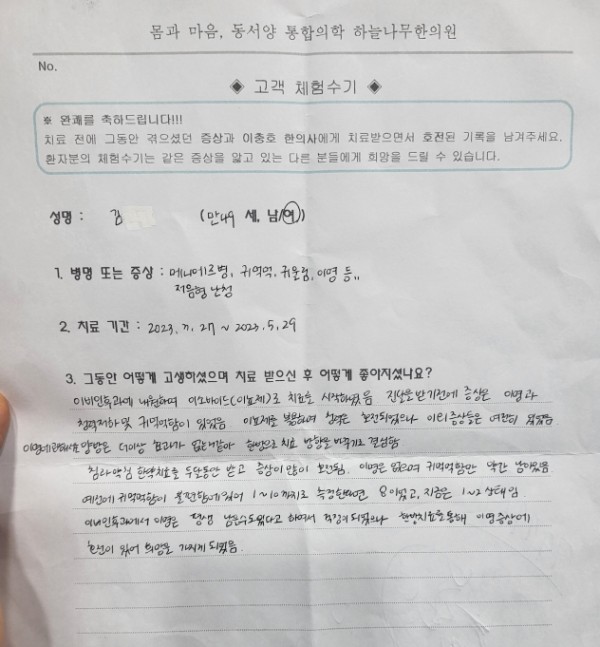 몸과 마음, 동서양 통합의학 하늘나무한의원
No.
◈ 고객 체험수기 ◈
※ 완쾌를 축하드립니다!!!
치료 전에 그동안 겪으셨던 증상과 이충호 한의사에게 치료받으면서 호전된 기록을 남겨주세요.
환자분의 체험수기는 같은 증상을 앓고 있는 다른 분들에게 희망을 드릴 수 있습니다.
성명 : 김 (만49 세, 남/여)
1. 병명 또는 증상 : 메니에르병, 귀먹먹, 귀울림, 이명 등..
저음형 난청
2. 치료 기간 : 2023. 27 ~ 2023. 5. 29
3. 그동안 어떻게 고생하셨으며 치료 받으신 후 어떻게 좋아지셨나요?
이비인후과에 내원하여 이소바이드(이뇨제)로 치료를 시작하였음 진단을 받기전에 증상은 이명과
청력저하 및 귀먹먹함이 있었음 이뇨제를 복용하여 청력은 호전되었으나 이외 증상들은 여전히 있었음
양방은 더이상 효과가 없는것같아 한방으로 치료 방향을 바꾸기로 결심함
침과 약침 한약치료를 두달동안 받고 증상이 많이 호전됨. 이명은 없으며 귀먹먹함만 약간 남아있음
예전에 귀먹먹함이 불편함에 있어 1~10까지로 측정한다면 8이었고, 지금은 1~2 상태임
이비인후과에서 이명은 평생 남을수도있다고 하여서 걱정이 되었으나 한방치료를 통해 이명증상에
호전이 있어 희망을 가지게 되었음.